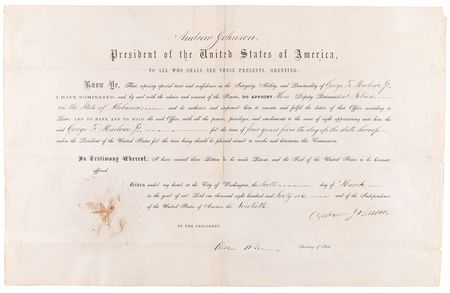 Andrew Johnson,
President of the United States of America,
TO ALL WHO SHALL SEE THESE PRESENTS, GREETING:
Know Ye, That, reposing special trust and confidence in the Integrity, Ability, and Punctuality of George F. Marlowe Jr.
I HAVE NOMINATED, and, by and with the advice and consent of the Senate, DO APPOINT him Deputy Postmaster at Selma
in the State of Alabama and do authorize and empower him to execute and fulfil the duties of that Office according to
Law; AND TO HAVE AND TO HOLD the said Office, with all the powers, privileges, and emoluments to the same of right appertaining unto him, the
said George F. Marlowe Jr. for the term of four years from the day of the date hereof
unless the President of the United States for the time being should be pleased sooner to revoke and determine this Commission.
In Testimony Whereof, I have caused these Letters to be made Patent, and the Seal of the United States to be hereunto
affixed.
Given under my hand, at the City of Washington, the day of March
in the year of our Lord one thousand eight hundred and Sixty six and of the Independence
of the United States of America the Ninetieth.
Andrew Johnson
BY THE PRESIDENT:
Secretary of State.